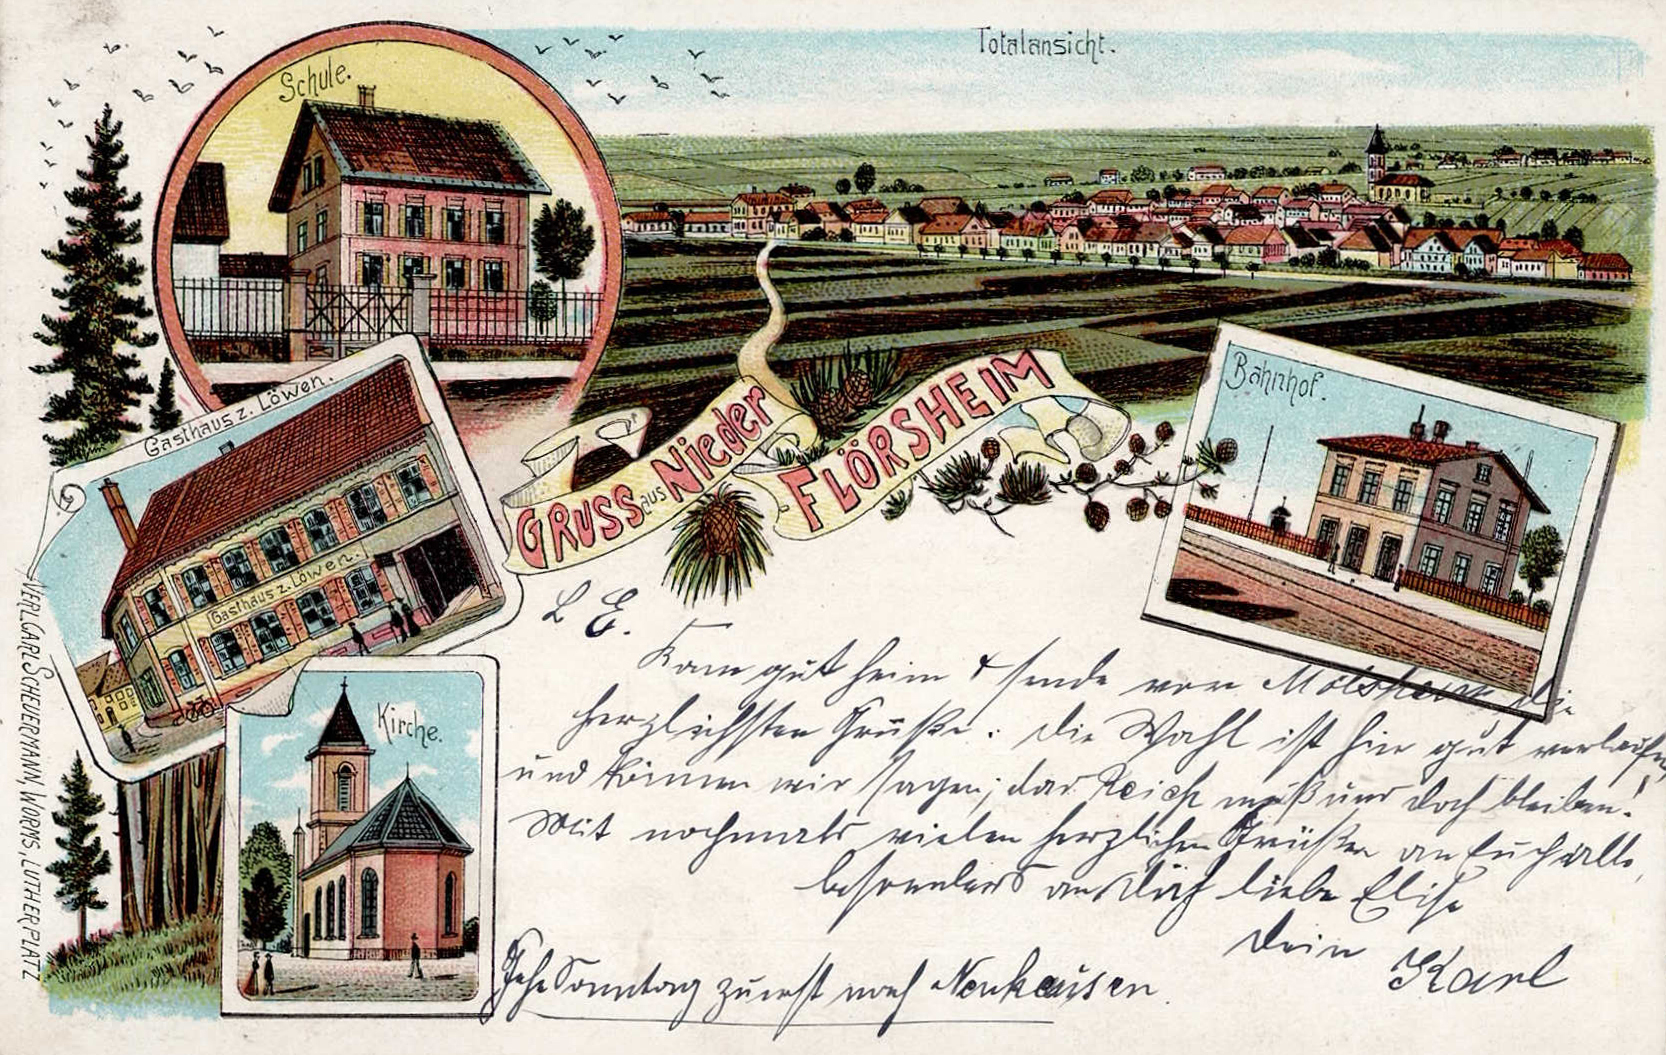 Totalansicht.
Schule.
Gasthaus z. Löwen.
Gasthaus z. Löwen.
GRUSS aus Nieder
-FLÖRSHEIM
Bahnhof.
Kirche.
VERL. CARL SCHEUERMANN, WORMS, LUTHERPLATZ
L E.
Kam gut heim & sende von Molsheim die
herzlichsten Grüße. Die Wahl ist hier gut verlaufen
und können wir sagen, das Reich muß uns doch bleiben!
Mit nochmals vielen herzlichen Grüßen an Euch alle,
besonders an Dich liebe Elise
Dein Karl
Gehe Sonntag zuerst nach Neuhausen.